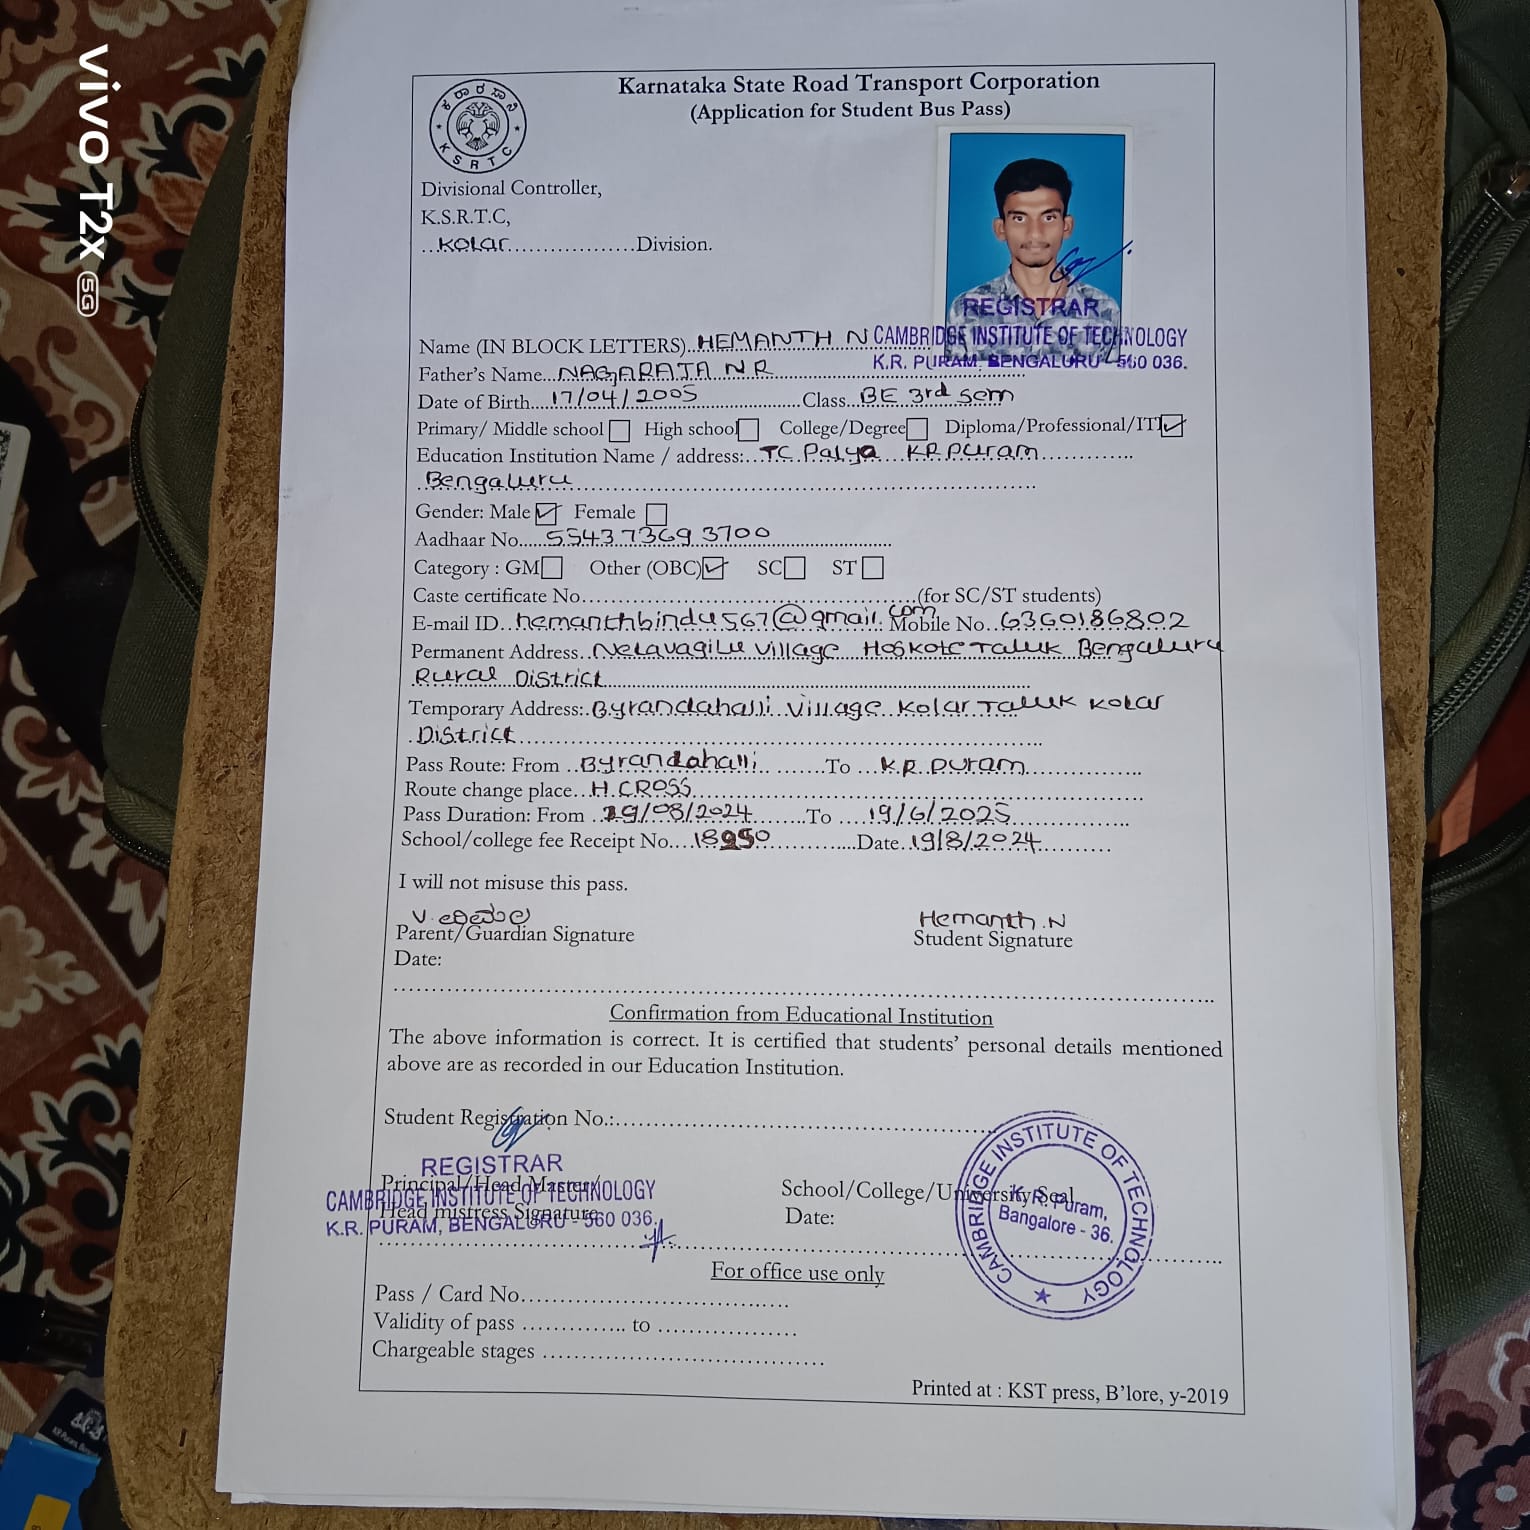 vivo T2x 5G
Karnataka State Road Transport Corporation
(Application for Student Bus Pass)
ಕ ರಾ ರ ಸಾ ನಿ
K S R T C
Divisional Controller,
K.S.R.T.C,
..Kolar..................Division.
REGISTRAR
CAMBRIDGE INSTITUTE OF TECHNOLOGY
K.R. PURAM, BENGALURU - 560 036.
Name (IN BLOCK LETTERS)..HEMANTH N
Father's Name...NAGARAJA N R
Date of Birth....17/04/2005..................Class...BE 3rd sem
Primary/ Middle school High school College/Degree Diploma/Professional/ITI
Education Institution Name / address:...TC Palya KR Puram.............
.Bengaluru............................................................
Gender: Male Female
Aadhaar No.....5543 7369 3700....................
Category : GM Other (OBC) SC ST
Caste certificate No.......................................................(for SC/ST students)
E-mail ID...hemanthbindu567@gmail.com Mobile No...6360186802
Permanent Address..Nelavagilu village Hoskote Taluk Bengaluru
Rural District......................................................................
Temporary Address:.Byrandahalli Village Kolar Taluk Kolar
.District.....................................................................................
Pass Route: From ..Byrandahalli.........To ....K.R puram...................
Route change place...H.CROSS......................................................................
Pass Duration: From ..19/08/2024.........To .....19/6/2025...................
School/college fee Receipt No....18950...............Date..19/8/2024...........
I will not misuse this pass.
Hemanth.N
Parent/Guardian Signature
Student Signature
Date:
Confirmation from Educational Institution
The above information is correct. It is certified that students' personal details mentioned
above are as recorded in our Education Institution.
Student Registration No.:.......................................................
REGISTRAR
Principal/Head Master/
CAMBRIDGE INSTITUTE OF TECHNOLOGY
Head mistress Signature
K.R. PURAM, BENGALURU - 560 036.
School/College/University Seal
Date:
CAMBRIDGE INSTITUTE OF TECHNOLOGY
K.R. Puram,
Bangalore - 36.
For office use only
Pass / Card No.......................................
Validity of pass .............. to ..................
Chargeable stages .....................................
Printed at : KST press, B'lore, y-2019